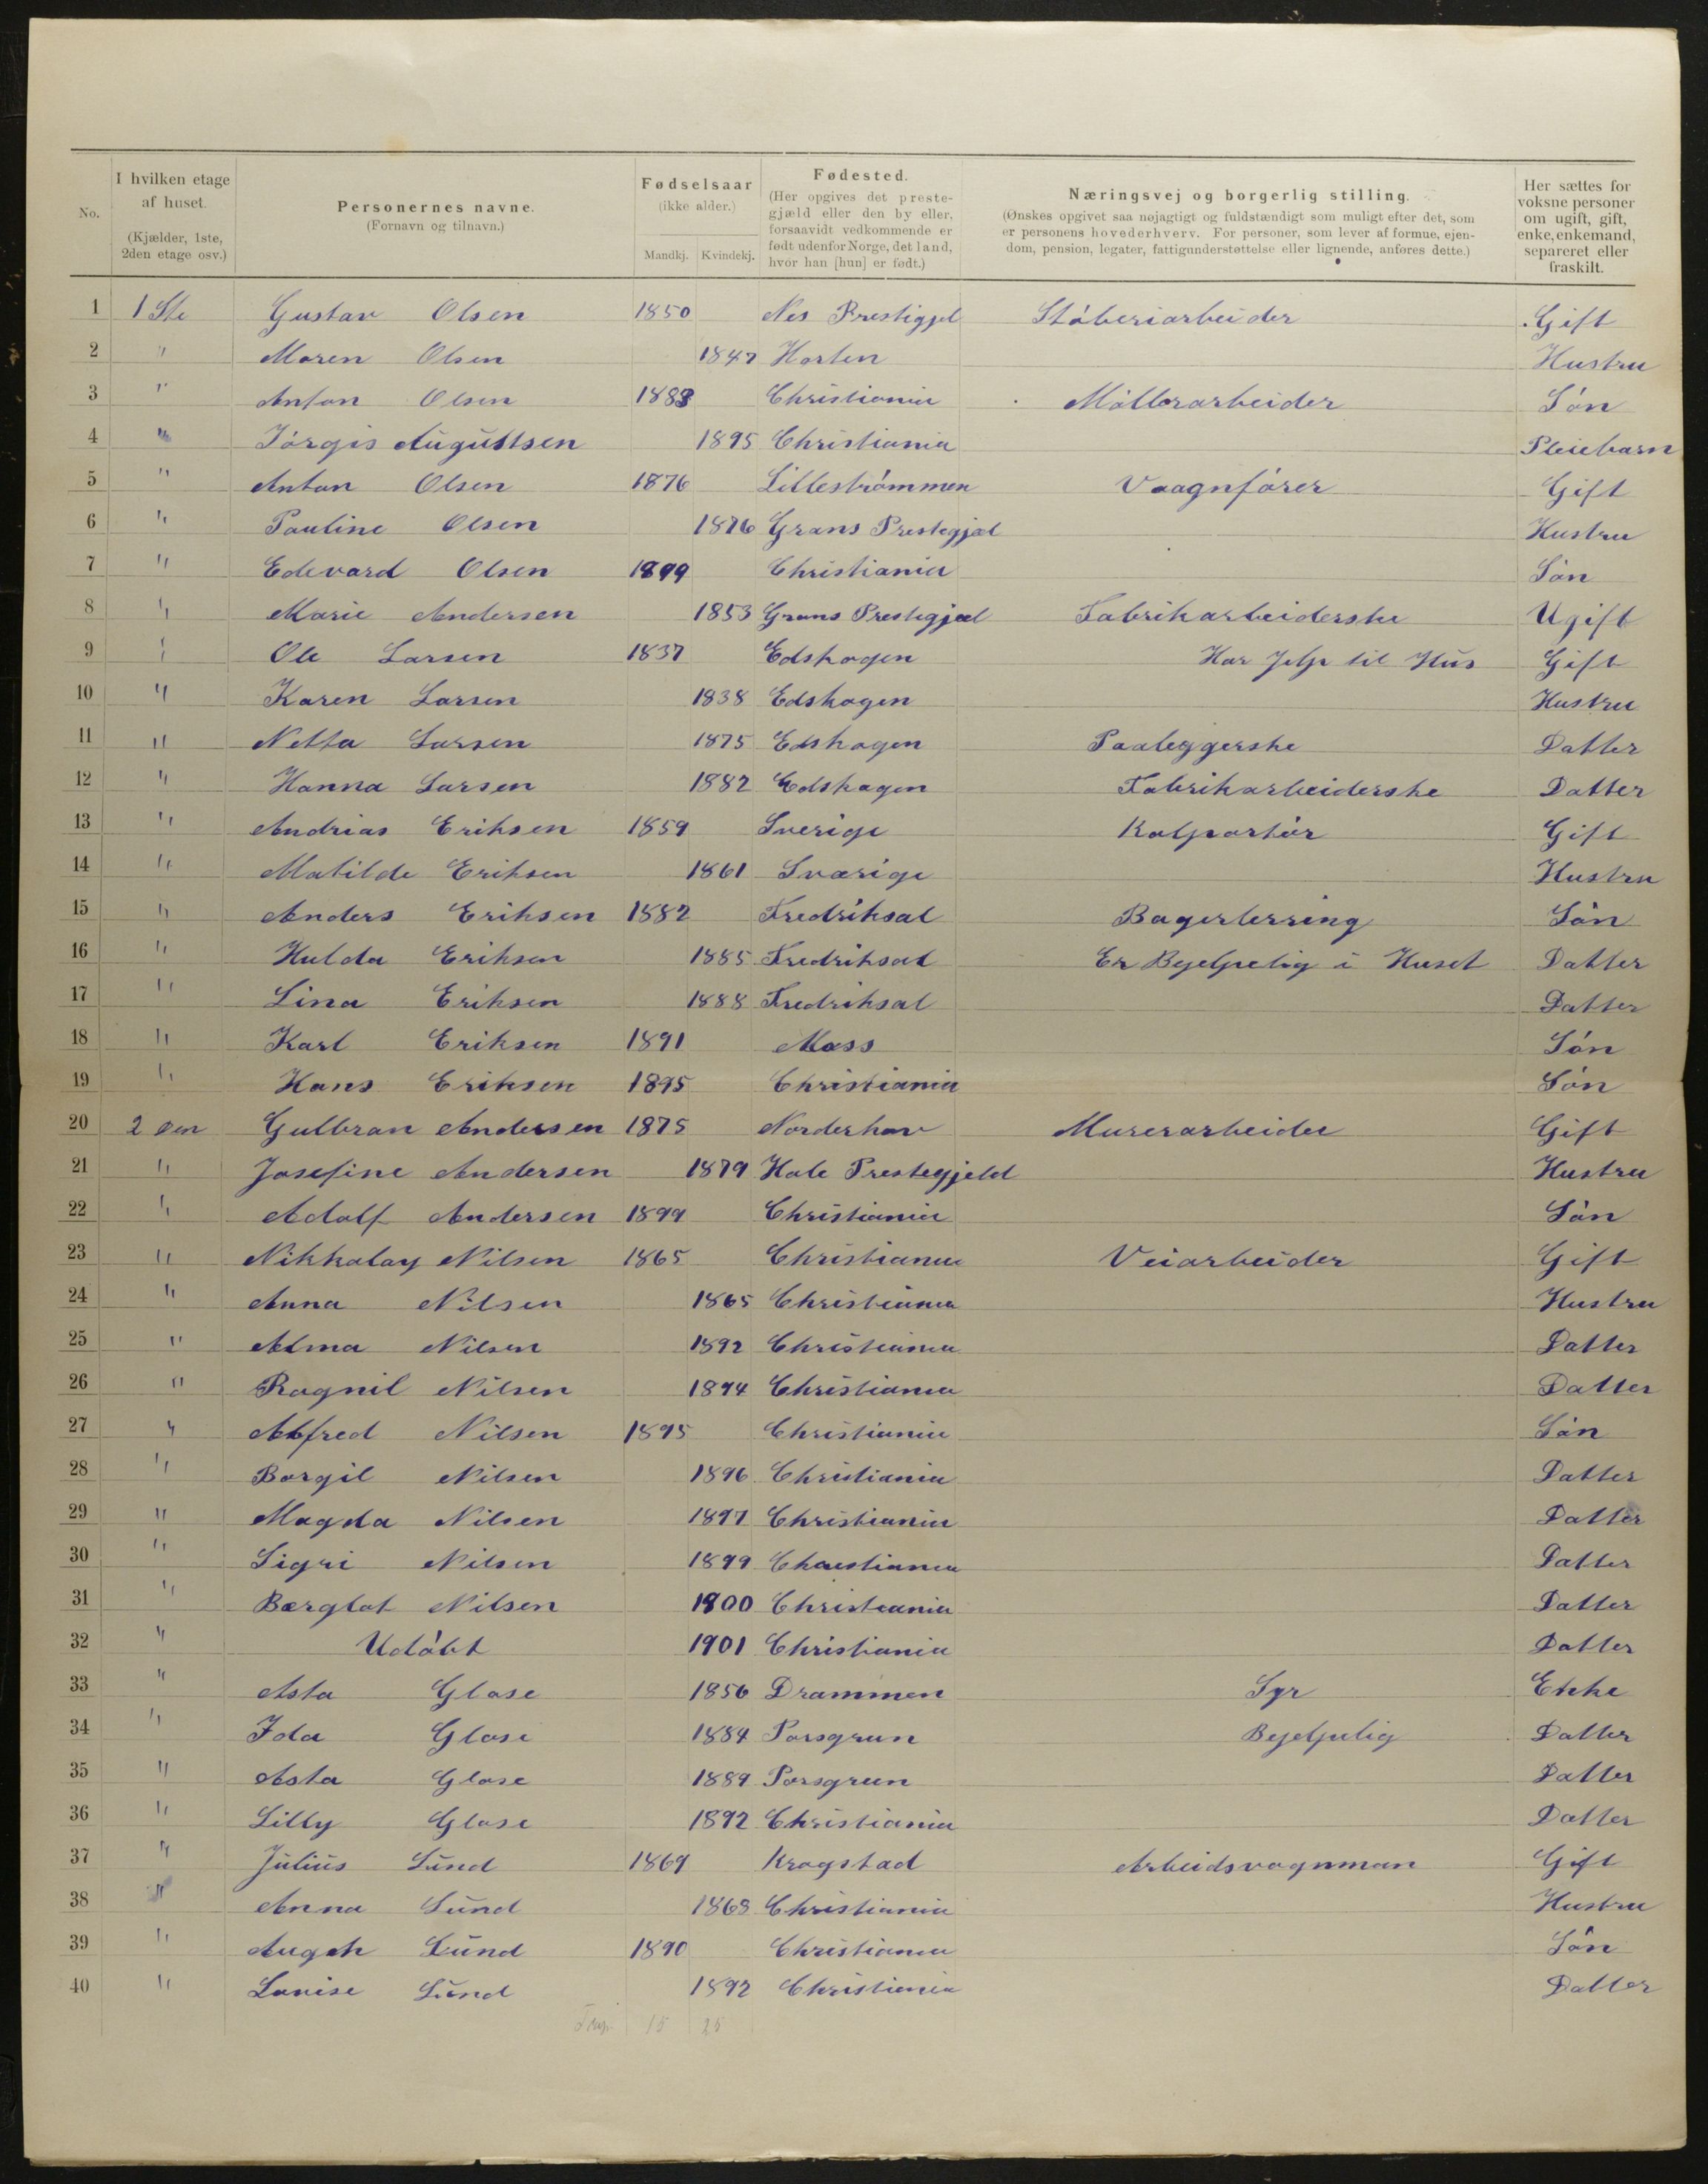 No. I hvilken etage af huset. (Kjælder, 1ste, 2den etage osv.) Personernes navne. (Fornavn og tilnavn.) Fødselsaar (ikke alder.) Mandkj. Kvindekj. Fødested. (Her opgives det prestegjæld eller den by eller, forsaavidt vedkommende er født udenfor Norge, det land, hvor han [hun] er født.) Næringsvej og borgerlig stilling. (Ønskes opgivet saa nøjagtigt og fuldstændigt som muligt efter det, som er personens hovederhverv. For personer, som lever af formue, ejendom, pension, legater, fattigunderstøttelse eller lignende, anføres dette.) Her sættes for voksne personer om ugift, gift, enke, enkemand, separeret eller fraskilt.
1 1 Ste Gustav Olsen 1850 Nes Prestigjel Stóberiarbeider Gift
2 " Maren Olsen 1847 Horten Hustru
3 " Anton Olsen 1883 Christiania Móllerarbeider Són
4 " Jórgis Augustsen 1895 Christiania Pleiebarn
5 " Anton Olsen 1876 Lillestrómmen Vaagnfórer Gift
6 " Pauline Olsen 1876 Grans Prestegjæl Hustru
7 " Edevard Olsen 1899 Christiania Són
8 " Marie Andersen 1853 Grans Prestegjæl Fabrikarbeiderske Ugift
9 " Ole Larsen 1837 Edskogen Har Jelp til Hus Gift
10 " Karen Larsen 1838 Edskogen Hustru
11 " Netta Larsen 1875 Edskogen Paaleggerske Datter
12 " Hanna Larsen 1882 Edskogen Fabrikarbeiderske Datter
13 " Andrias Eriksen 1859 Sverige Kolportór Gift
14 " Matilde Eriksen 1861 Sværige Hustru
15 " Anders Eriksen 1882 Fredriksal Bagerlerring Són
16 " Hulda Eriksen 1885 Fredriksal Er Bejelpelig i Huset Datter
17 " Lina Eriksen 1888 Fredriksal Datter
18 " Karl Eriksen 1891 Moss Són
19 " Hans Eriksen 1895 Christiania Són
20 2 den Gulbran Andersen 1875 Norderhov Murerarbeider Gift
21 " Josefine Andersen 1879 Hole Prestegjeld Hustru
22 " Adolf Andersen 1899 Christiania Són
23 " Nikkolay Nilsen 1865 Christiania Veiarbeider Gift
24 " Anna Nilsen 1865 Christiania Hustru
25 " Alma Nilsen 1892 Christiania Datter
26 " Ragnil Nilsen 1894 Christiania Datter
27 " Alfred Nilsen 1895 Christiania Són
28 " Borgil Nilsen 1896 Christiania Datter
29 " Magda Nilsen 1897 Christiania Datter
30 " Sigri Nilsen 1899 Christiania Datter
31 " Bærglot Nilsen 1900 Christiania Datter
32 " Udóbt 1901 Christiania Datter
33 " Asta Glose 1856 Drammen Syr Enke
34 " Ida Glose 1884 Porsgrun Bejelpelig Datter
35 " Asta Glose 1889 Porsgrun Datter
36 " Lilly Glose 1892 Christiania Datter
37 " Julius Lund 1869 Krogstad Arbeidsvognman Gift
38 " Anna Lund 1868 Christiania Hustru
39 " Lund 1890 Christiania Són
40 " Lovise Lund 1892 Christiania Datter
15 25